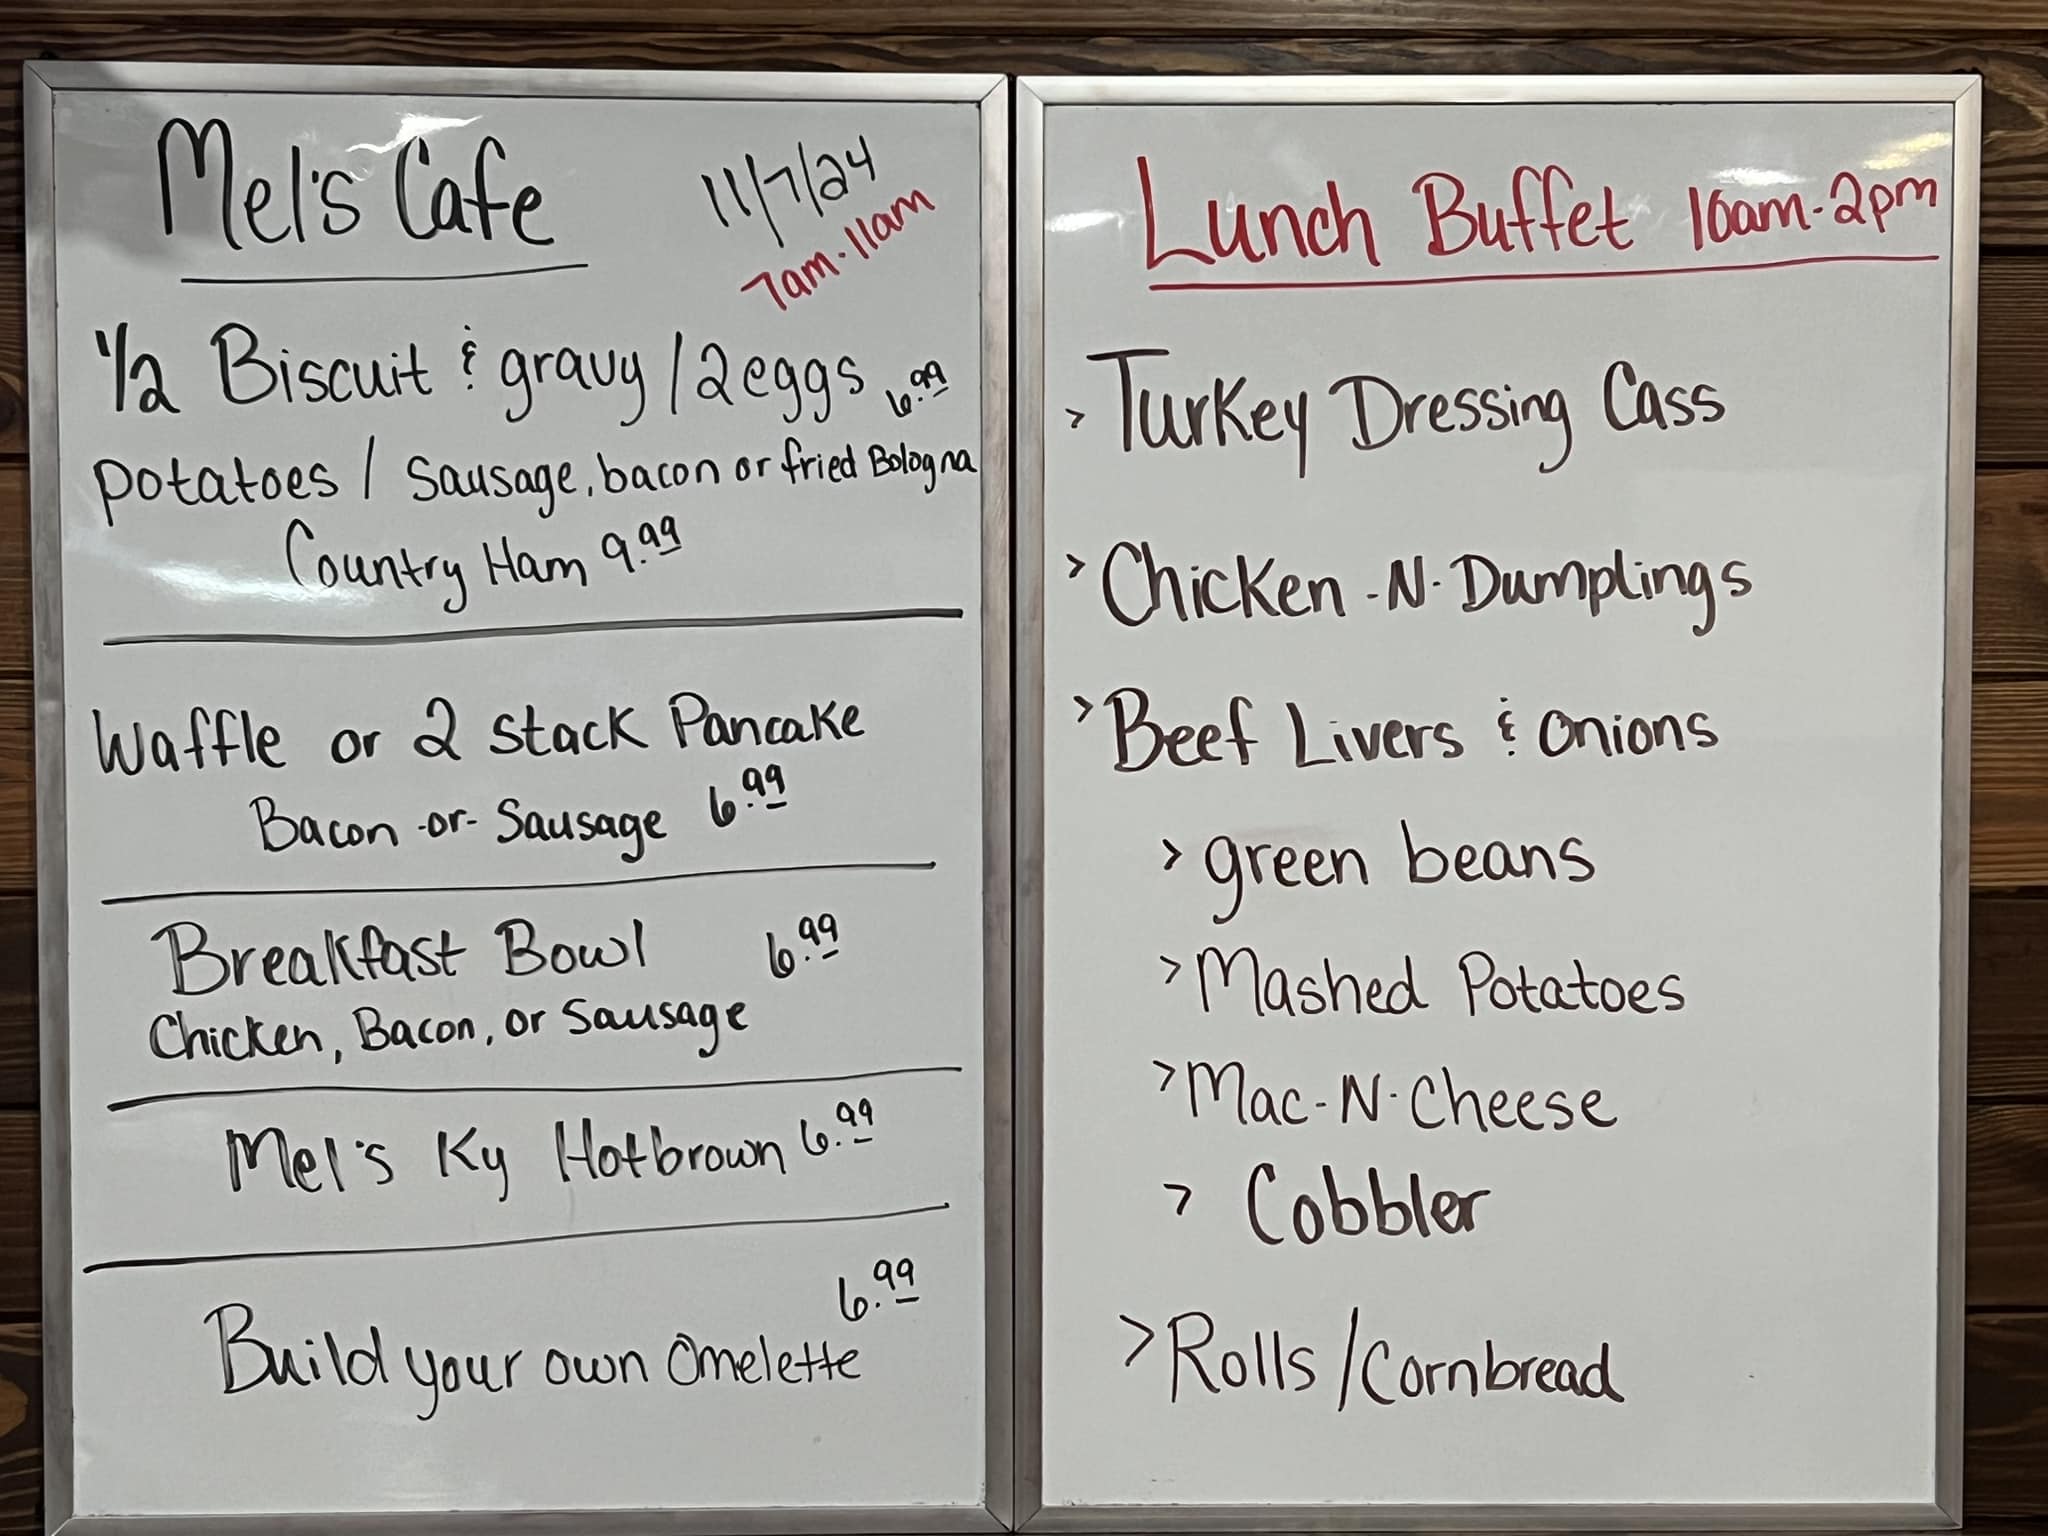 Mel's Cafe 11/7/24
7am-11am
1/2 Biscuit & gravy / 2 eggs 6.99
potatoes / Sausage, bacon or fried Bologna
Country Ham 9.99
Waffle or 2 Stack Pancake
Bacon -or- Sausage 6.99
Breakfast Bowl 6.99
Chicken, Bacon, or Sausage
Mel's Ky Hotbrown 6.99
6.99
Build your own Omelette
Lunch Buffet 10am-2pm
> Turkey Dressing Cass
> Chicken -N- Dumplings
> Beef Livers & Onions
> green beans
> Mashed Potatoes
> Mac-N-Cheese
> Cobbler
> Rolls / Cornbread